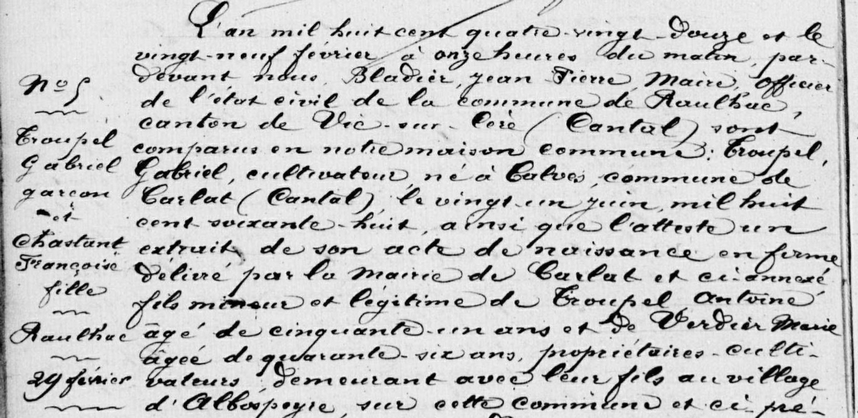 L'an mil huit cent quatre-vingt-douze et le
vingt-neuf février à onze heures du matin, par-
devant nous, Bladier, Jean-Pierre, Maire, officier
de l'état civil de la commune de Raulhac,
canton de Vic-sur-Cère (Cantal) sont
comparus en notre maison commune: Troupel,
Gabriel, cultivateur né à Calves, commune de
Carlat (Cantal) le vingt un juin, mil huit
cent soixante-huit, ainsi que l'atteste un
extrait de son acte de naissance en forme
délivré par la Mairie de Carlat et ci-annexé
fils mineur et légitime de Troupel Antoine
âgé de cinquante-un ans et de Verdier Marie
âgée de quarante-six ans, propriétaires-culti-
vateurs, demeurant avec leur fils au village
d'Albospeyre, sur cette commune et ci pré-
N° 5
Troupel
Gabriel
garçon
et
Chastant
Françoise
fille
Raulhac
29 février